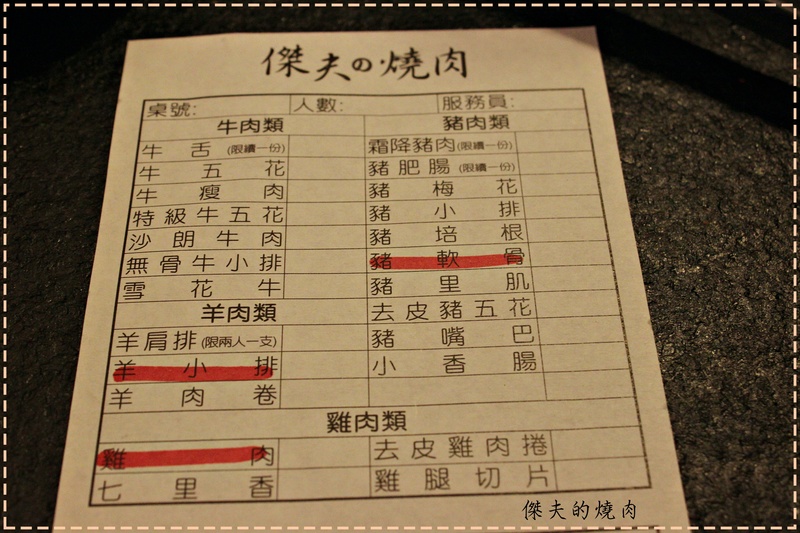 傑夫の燒肉
桌號: 人數: 服務員:
牛肉類 豬肉類
牛舌(限續一份) 霜降豬肉(限續一份)
牛五花 豬肥腸(限續一份)
牛瘦肉 豬梅花
特級牛五花 豬小排
沙朗牛肉 豬培根
無骨牛小排 豬軟骨
雪花牛 豬里肌
羊肉類 去皮豬五花
羊肩排(限兩人一支) 豬嘴巴
羊小排 小香腸
羊肉卷
雞肉類
雞肉 去皮雞肉捲
七里香 雞腿切片
傑夫的燒肉